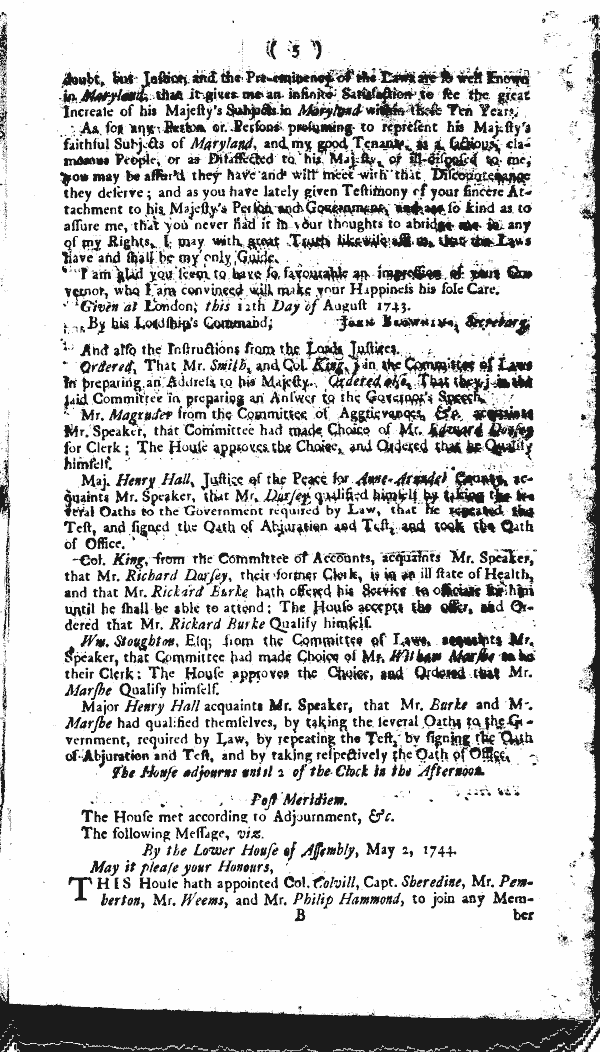 ( 5 )
doubt, but Justice, and the Pre-eminency of the Laws are so well known
in Maryland, that it gives me an infinite Satisfaction to see the great
Increase of his Majesty's Subjects in Maryland within these Ten Years.
As for any Person or Persons presuming to represent his Majesty's
faithful Subjects of Maryland, and my good Tenants, as a factious, cla-
morous People, or as Disaffected to his Majesty, or ill-disposed to me,
you may be assur'd they have and will meet with that Discountenance
they deserve; and as you have lately given Testimony of your sincere At-
tachment to his Majesty's Person and Government, and are so kind as to
assure me, that you never had it in your thoughts to abridge me in any
of my Rights, I may with great Truth likewise assure you, that the Laws
have and shall be my only Guide.
I am glad you seem to have so favourable an impression of your Gov-
vernor, who I am convinced will make your Happiness his sole Care.
Given at London, this 12th Day of August 1743.
By his Lordship's Command, John Browning, Secretary.
And also the Instructions from the Lords Justices.
Ordered, That Mr. Smith, and Col. King, join the Committee of Laws
in preparing an Address to his Majesty. Ordered also, That they join the
said Committee in preparing an Answer to the Governor's Speech.
Mr. Magruder from the Committee of Aggrievances, &c. acquaints
Mr. Speaker, that Committee had made Choice of Mr. Edward Dorsey
for Clerk; The House approves the Choice, and Ordered that he Qualify
himself.
Maj. Henry Hall, Justice of the Peace for Anne-Arundel County, ac-
quaints Mr. Speaker, that Mr. Dorsey qualified himself by taking the se-
veral Oaths to the Government required by Law, that he repeated the
Test, and signed the Oath of Abjuration and Test, and took the Oath
of Office.
Col. King, from the Committee of Accounts, acquaints Mr. Speaker,
that Mr. Richard Dorsey, their former Clerk, is in an ill state of Health,
and that Mr. Rickard Burke hath offered his Service to officiate for him
until he shall be able to attend; The House accepts the offer, and Or-
dered that Mr. Rickard Burke Qualify himself.
Wm. Stoughton, Esq; from the Committee of Laws, acquaints Mr.
Speaker, that Committee had made Choice of Mr. William Marshe to be
their Clerk; The House approves the Choice, and Ordered that Mr.
Marshe Qualify himself.
Major Henry Hall acquaints Mr. Speaker, that Mr. Burke and Mr.
Marshe had qualified themselves, by taking the several Oaths to the Go-
vernment, required by Law, by repeating the Test, by signing the Oath
of Abjuration and Test, and by taking respectively the Oath of Office.
The House adjourns until 2 of the Clock in the Afternoon.
Post Meridiem.
The House met according to Adjournment, &c.
The following Message, viz.
By the Lower House of Assembly, May 2, 1744.
May it please your Honours,
THIS House hath appointed Col. Colvill, Capt. Sheredine, Mr. Pem-
berton, Mr. Weems, and Mr. Philip Hammond, to join any Mem-
B ber